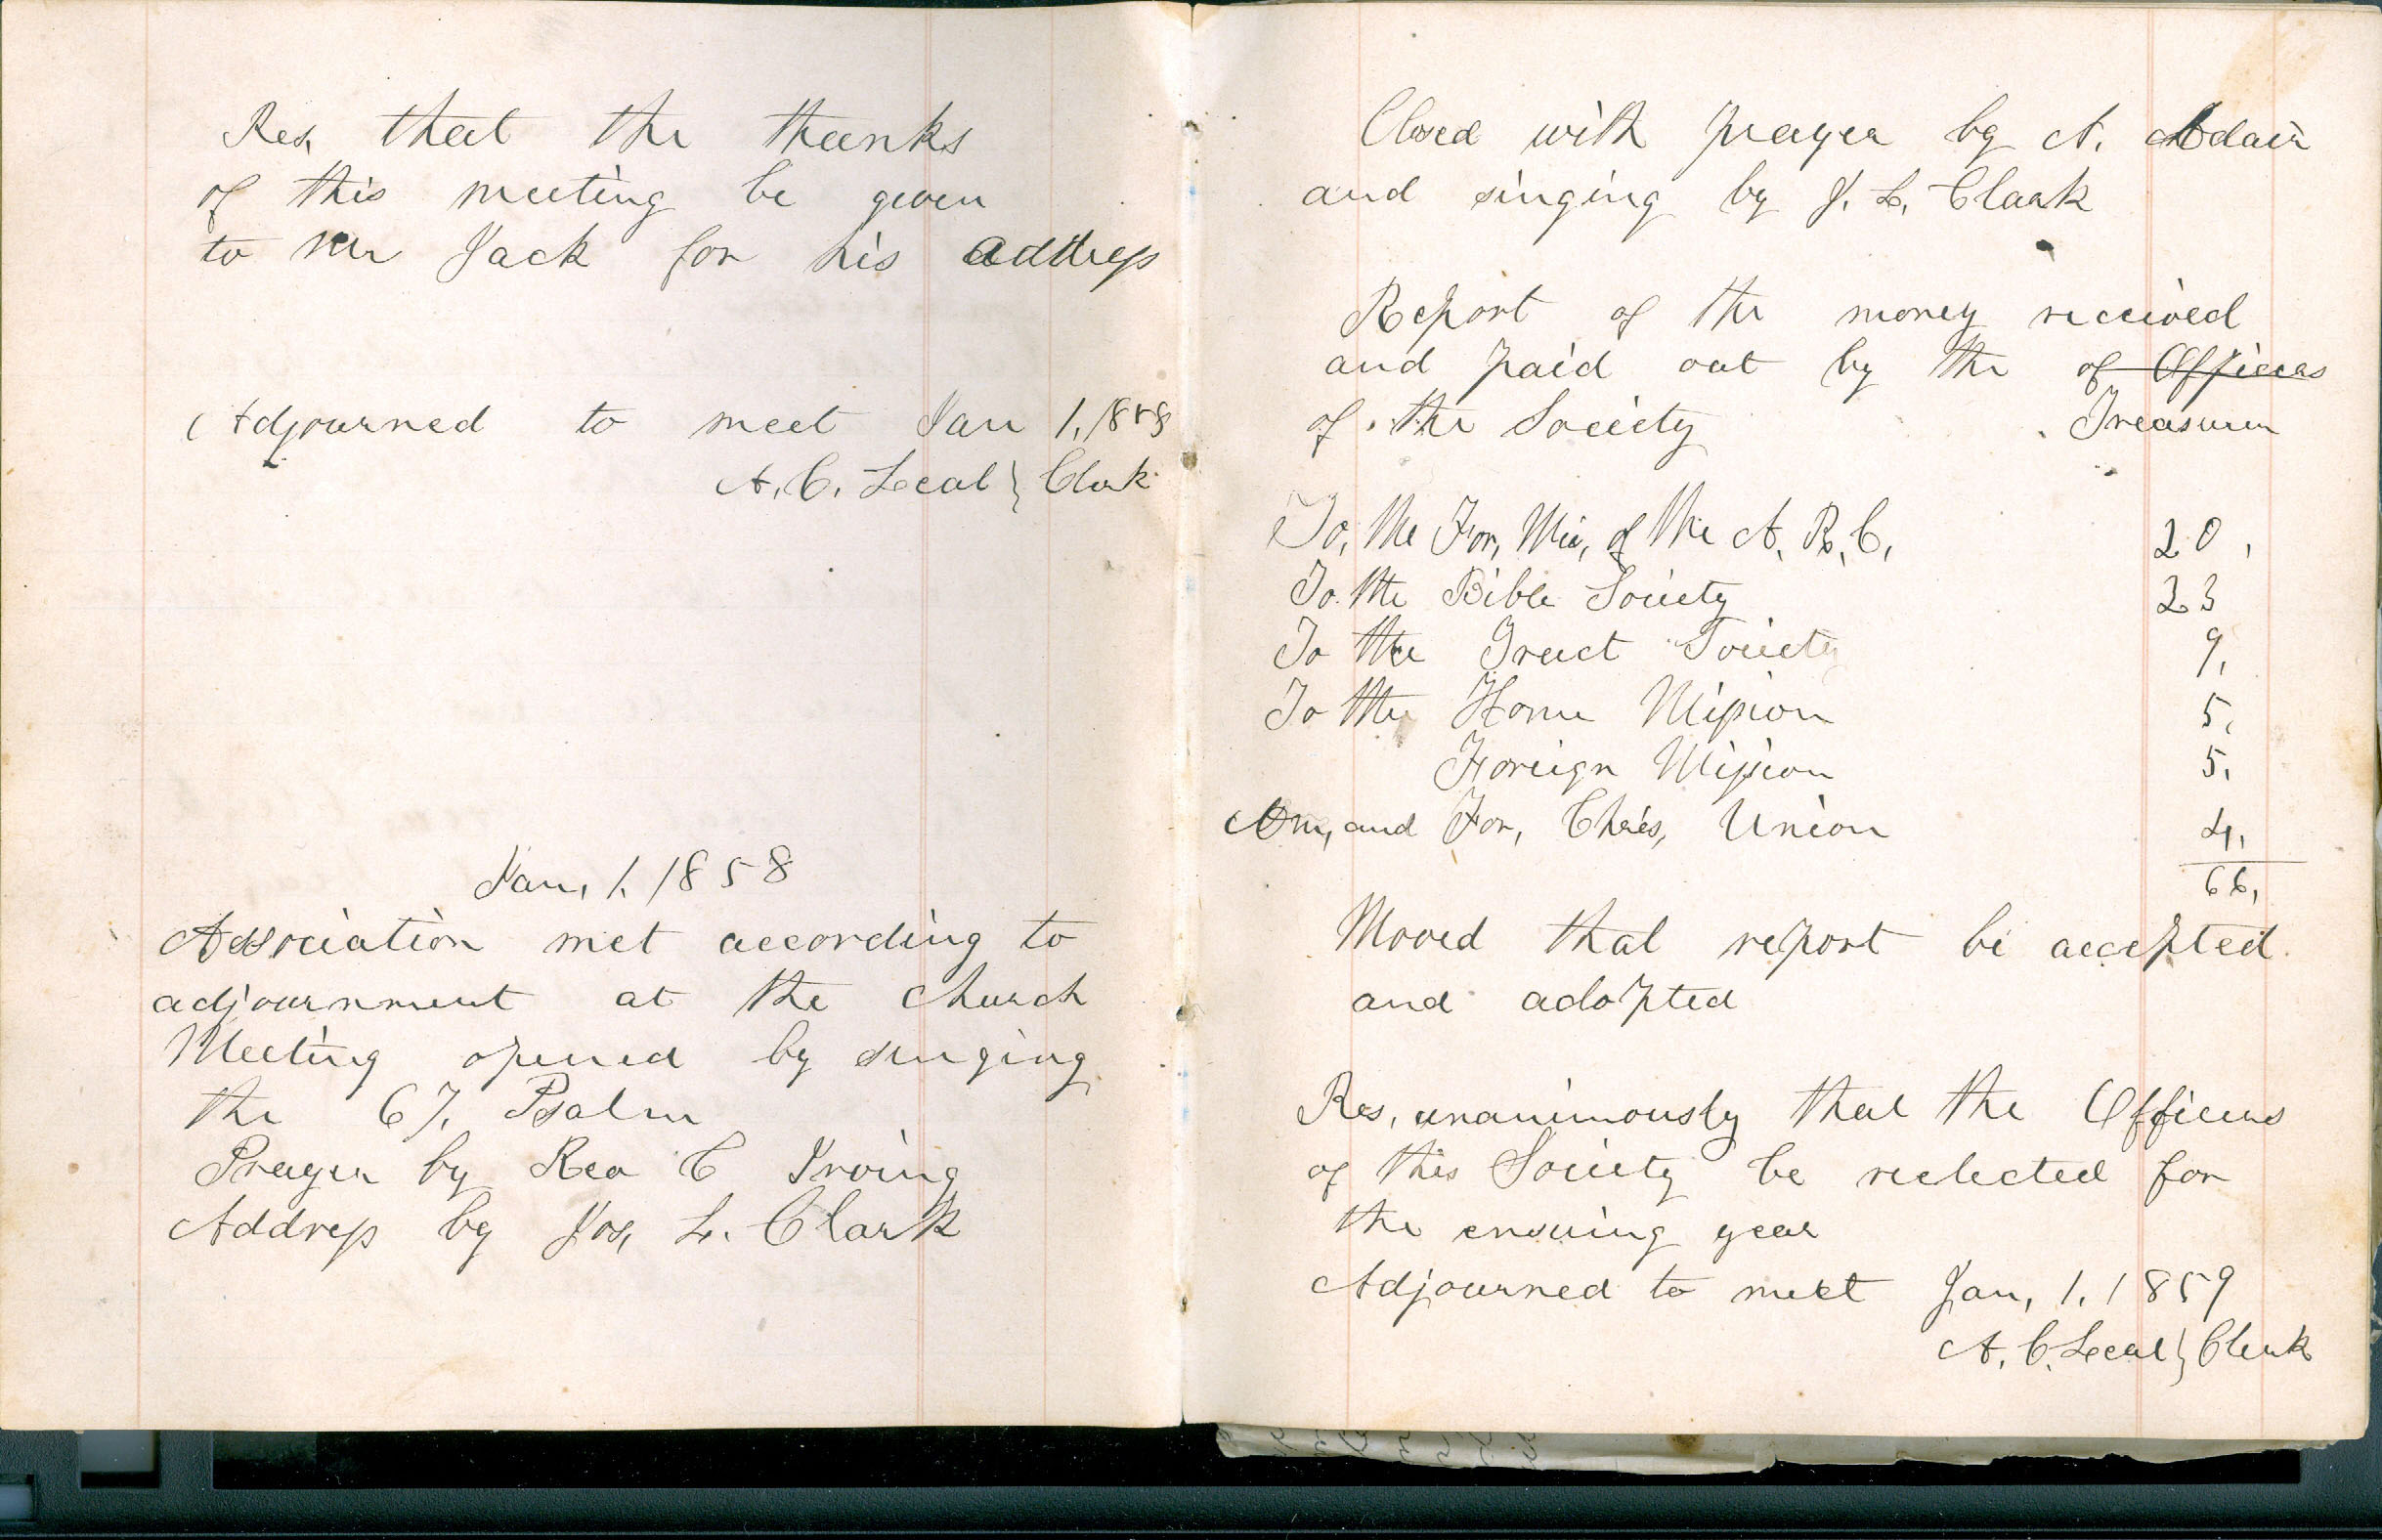 Res, that the thanks
of this meeting be given
to Mr Jack for his address
Adjourned to meet Jan 1, 1858
A. C. Leeal } Clerk
Jan, 1. 1858
Association met according to
adjournment at the church
Meeting opened by singing
the 67, Psalm
Prayer by Rev C Irving
Address by Jos, L. Clark
Closed with prayer by A. Adair
and singing by J. L. Clark
Report of the money received
and paid out by the of Officers
of the Society Treasurer
To, the For, Mis, of the A. R. C, 20,
To the Bible Society 23
To the Tract Society 9,
To the Home Mission 5,
Foreign Mission 5,
Am, and For, Chris, Union 4,
66,
Moved that report be accepted
and adopted
Res, unanimously that the Officers
of this Society be reelected for
the ensuing year
Adjourned to meet Jan, 1. 1859
A. C. Leeal } Clerk